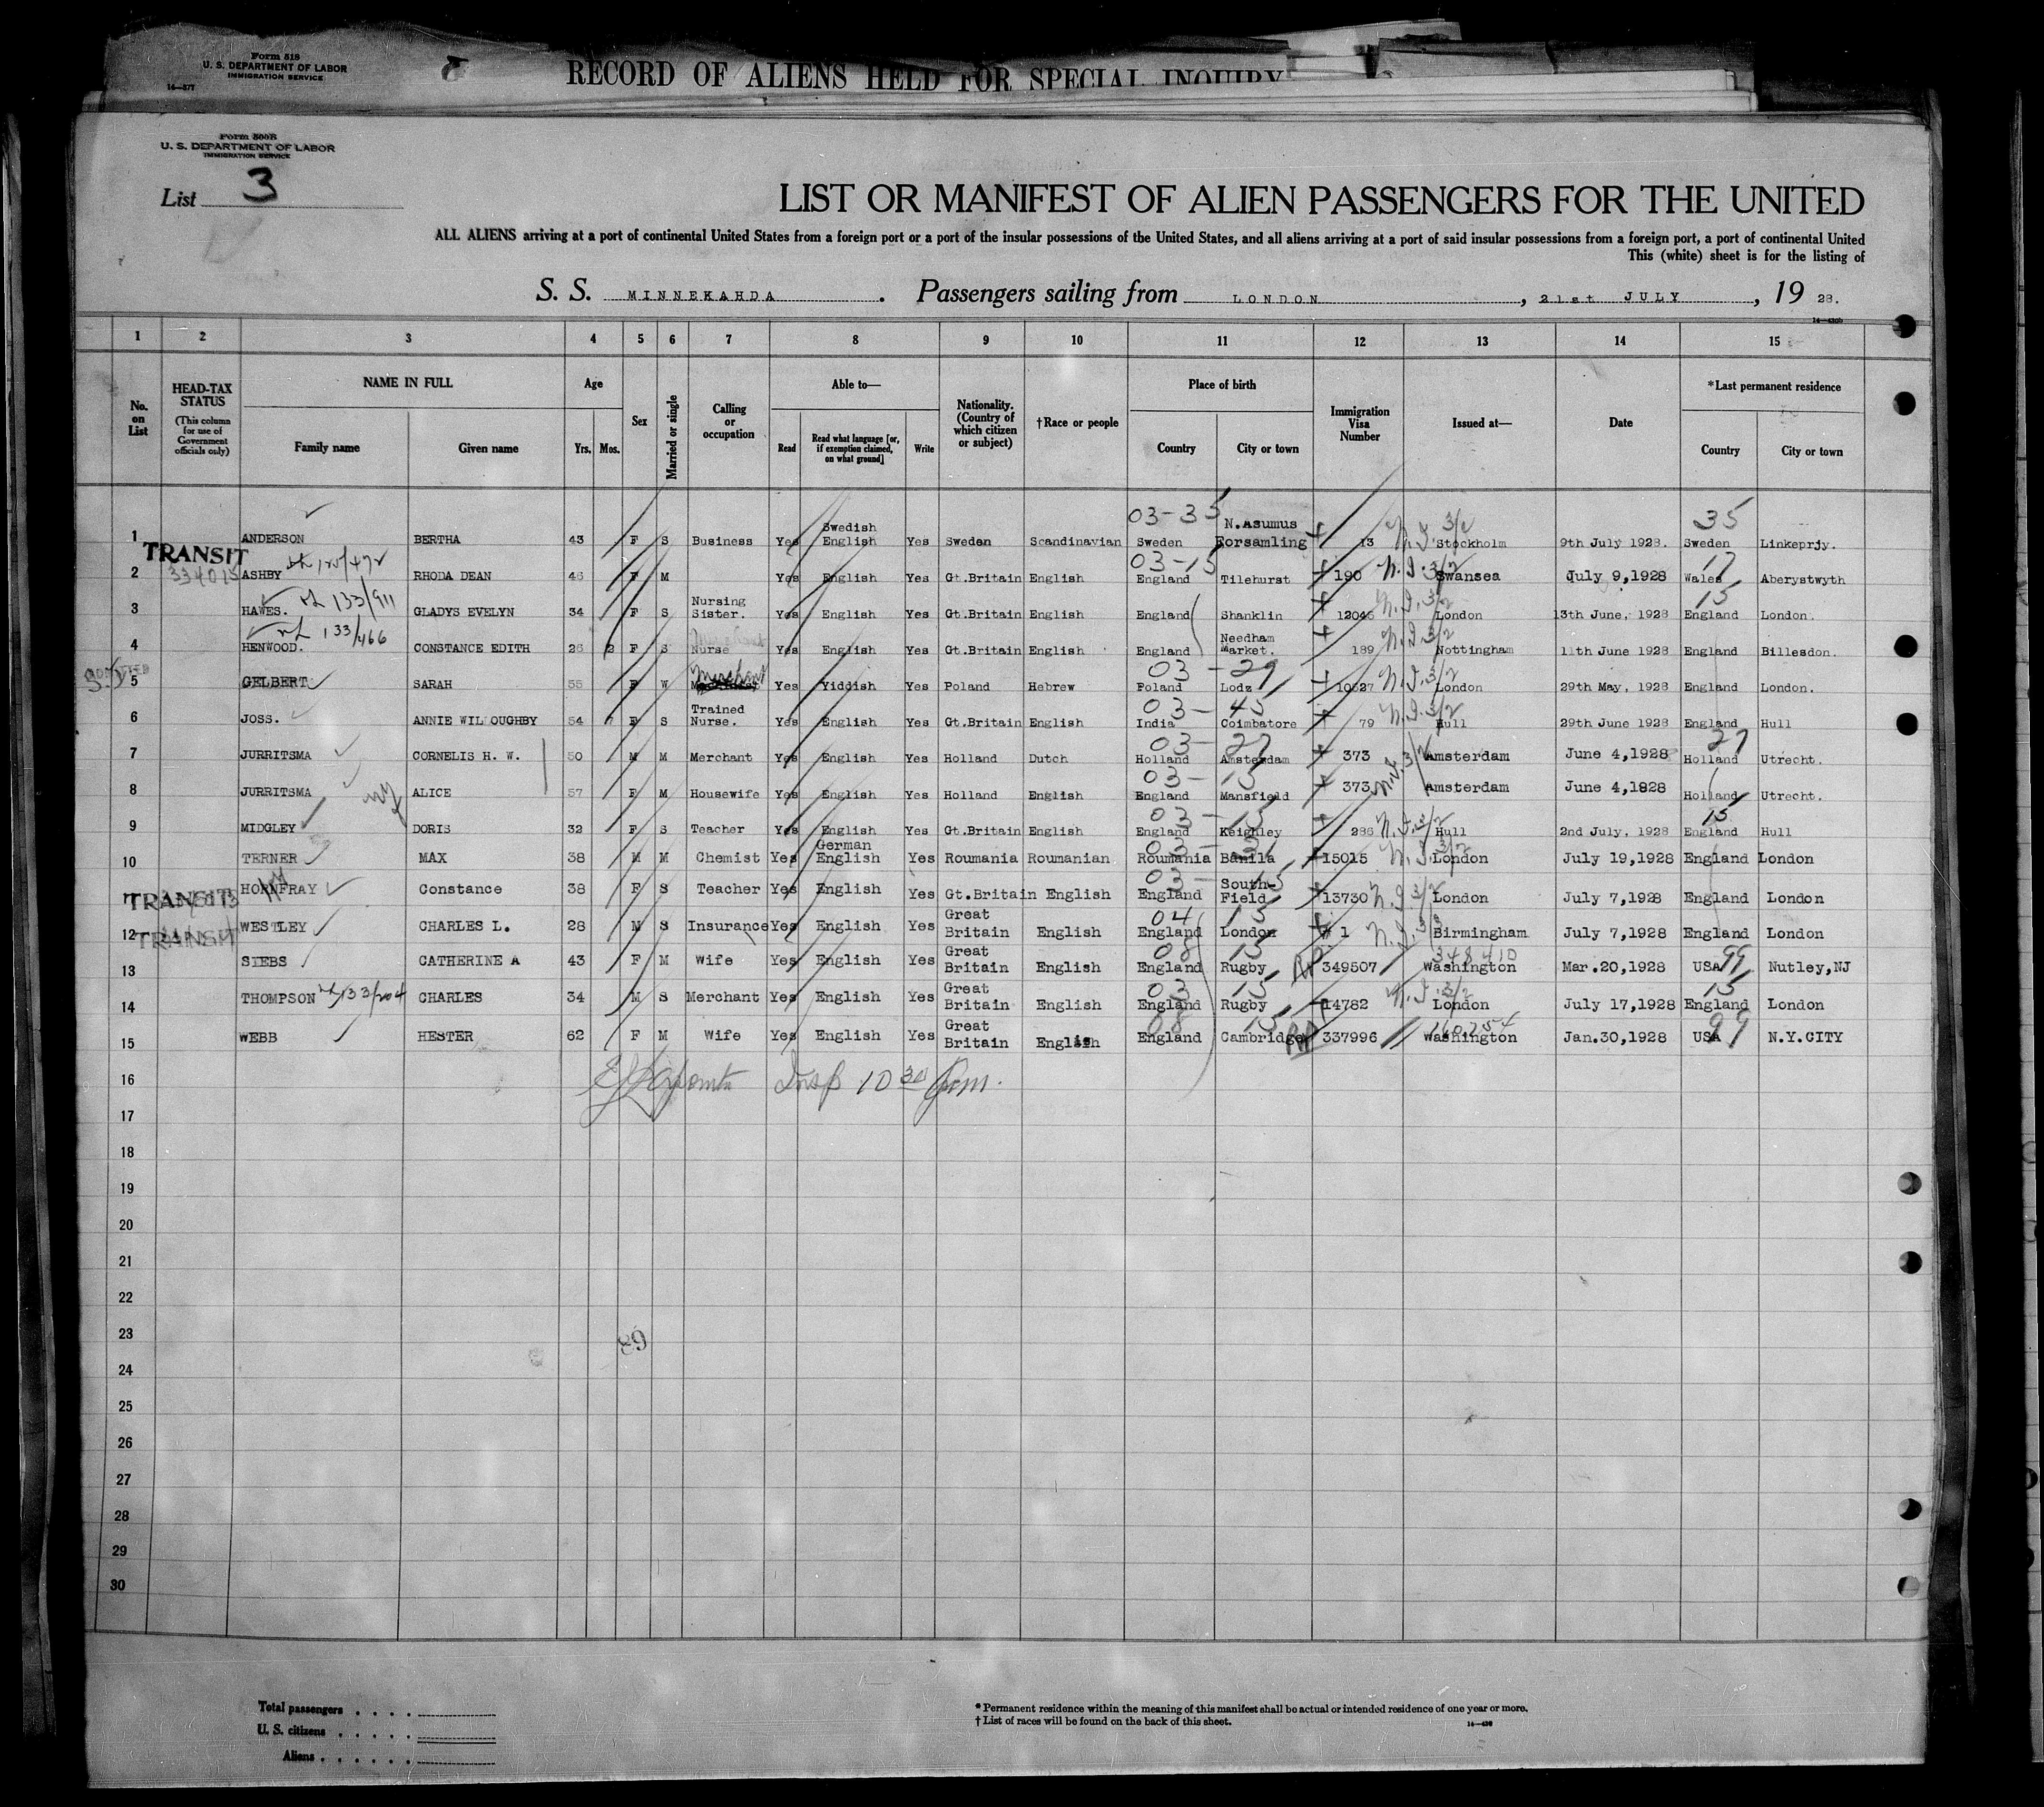 Form 518
U. S. DEPARTMENT OF LABOR
IMMIGRATION SERVICE
14—377
RECORD OF ALIENS HELD FOR SPECIAL INQUIRY
Form 500B
U. S. DEPARTMENT OF LABOR
IMMIGRATION SERVICE
List 3
LIST OR MANIFEST OF ALIEN PASSENGERS FOR THE UNITED
ALL ALIENS arriving at a port of continental United States from a foreign port or a port of the insular possessions of the United States, and all aliens arriving at a port of said insular possessions from a foreign port, a port of continental United
This (white) sheet is for the listing of
S. S. MINNEKAHDA. Passengers sailing from LONDON, 21st JULY, 19 28.
1 2 3 4 5 6 7 8 9 10 11 12 13 14 15
No. on List
HEAD-TAX STATUS (This column for use of Government officials only)
NAME IN FULL Family name Given name
Age Yrs. Mos.
Sex
Married or single
Calling or occupation
Able to— Read Read what language [or, if exemption claimed, on what ground] Write
Nationality. (Country of which citizen or subject)
†Race or people
Place of birth Country City or town
Immigration Visa Number
Issued at—
Date
*Last permanent residence Country City or town
03-35 35
1 ANDERSON BERTHA 43 F S Business Yes Swedish English Yes Sweden Scandinavian Sweden N.Asumus Forsamling 13 N.I. 3/2 Stockholm 9th July 1928. Sweden Linkeprjy.
TRANSIT 03-15 17
2 334015 ASHBY RHODA DEAN 46 F M Yes English Yes Gt.Britain English England Tilehurst 190 N.I. 3/2 Swansea July 9,1928 Wales Aberystwyth
133/911 15
3 HAWES. GLADYS EVELYN 34 F S Nursing Sister. Yes English Yes Gt.Britain English England Shanklin 12046 N.I. 3/2 London 13th June, 1928 England London.
133/466
4 HENWOOD. CONSTANCE EDITH 26 2 F S Nurse Yes English Yes Gt.Britain English England Needham Market. 189 N.I. 3/2 Nottingham 11th June 1928 England Billesdon.
03-29
5 GELBERT SARAH 55 F W Merchant Yes Yiddish Yes Poland Hebrew Poland Lodz 10527 N.I. 3/2 London 29th May, 1928 England London.
03-45
6 JOSS. ANNIE WILLOUGHBY 54 7 F S Trained Nurse. Yes English Yes Gt.Britain English India Coimbatore 79 N.I. 3/2 Hull 29th June 1928 England Hull
03-27 27
7 JURRITSMA CORNELIS H. W. 50 M M Merchant Yes English Yes Holland Dutch Holland Amsterdam 373 N.I. 3/2 Amsterdam June 4,1928 Holland Utrecht.
03-15
8 JURRITSMA ALICE 57 F M Housewife Yes English Yes Holland English England Mansfield 373 Amsterdam June 4,1928 Holland Utrecht.
03-15 15
9 MIDGLEY DORIS 32 F S Teacher Yes English Yes Gt.Britain English England Keighley 286 N.I. 3/2 Hull 2nd July, 1928 England Hull
10 TERNER MAX 38 M M Chemist Yes German English Yes Roumania Roumanian Roumania Banila 15015 N.I. 3/2 London July 19,1928 England London
03-15
11 TRANSIT HORNFRAY Constance 38 F S Teacher Yes English Yes Gt.Britain English England South-Field 13730 N.I. 3/2 London July 7,1928 England London
04 15
12 TRANSIT WESTLEY CHARLES L. 28 M S Insurance Yes English Yes Great Britain English England London # 1 N.I. 3/3 Birmingham July 7,1928 England London
08 15 348410 99
13 SIEBS CATHERINE A 43 F M Wife Yes English Yes Great Britain English England Rugby 349507 Washington Mar.20,1928 USA Nutley,NJ
03 15 15
14 THOMPSON 133/204 CHARLES 34 M S Merchant Yes English Yes Great Britain English England Rugby 14782 N.I. 3/2 London July 17,1928 England London
08 15 99
15 WEBB HESTER 62 F M Wife Yes English Yes Great Britain English England Cambridge RP 337996 Washington Jan.30,1928 USA N.Y.CITY
16 Insp 10 30 pm.
17
18
19
20
21
22
23
89
24
25
26
27
28
29
30
Total passengers . . . .
U. S. citizens . . . . .
Aliens . . . . . .
* Permanent residence within the meaning of this manifest shall be actual or intended residence of one year or more.
† List of races will be found on the back of this sheet.
14—430